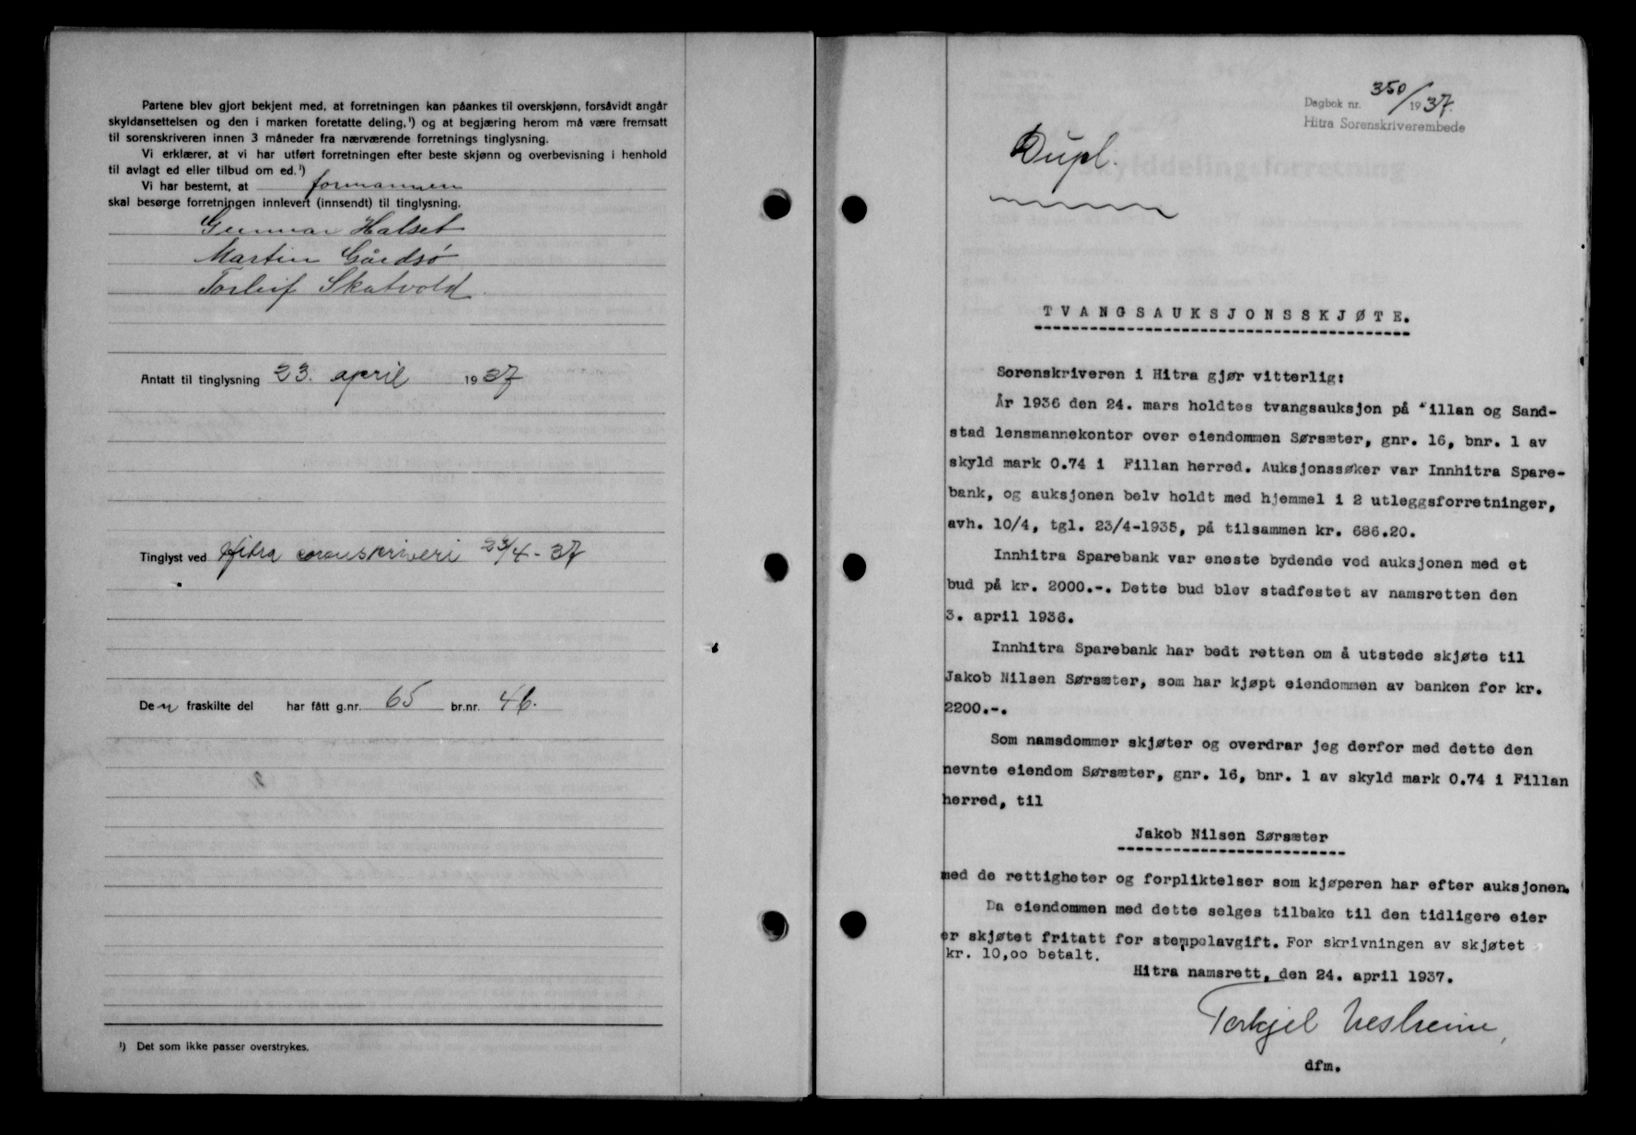 Partene blev gjort bekjent med, at forretningen kan påankes til overskjønn, forsåvidt angår
skyldansettelsen og den i marken foretatte deling,¹) og at begjæring herom må være fremsatt
til sorenskriveren innen 3 måneder fra nærværende forretnings tinglysning.
Vi erklærer, at vi har utført forretningen efter beste skjønn og overbevisning i henhold
til avlagt ed eller tilbud om ed.¹)
Vi har bestemt, at formannen
skal besørge forretningen innlevert (innsendt) til tinglysning.
Gunnar Halset
Martin Gårdsö
Torleif Skatvold
Antatt til tinglysning 23. april 1937
Tinglyst ved Hitra sorenskriveri 23/4-37
Den fraskilte del har fått g.nr. 65 br.nr. 46.
¹) Det som ikke passer overstrykes.
Dagbok nr. 350/1937.
Hitra Sorenskriverembede
Dupl.
TVANGSAUKSJONSSKJØTE.
Sorenskriveren i Hitra gjør vitterlig:
År 1936 den 24. mars holdtes tvangsauksjon på illan og Sand-
stad lensmannekontor over eiendommen Sørsæter, gnr. 16, bnr. 1 av
skyld mark 0.74 i Fillan herred. Auksjonssøker var Innhitra Spare-
bank, og auksjonen belv holdt med hjemmel i 2 utleggsforretninger,
avh. 10/4, tgl. 23/4-1935, på tilsammen kr. 686.20.
Innhitra Sparebank var eneste bydende ved auksjonen med et
bud på kr. 2000.-. Dette bud blev stadfestet av namsretten den
3. april 1936.
Innhitra Sparebank har bedt retten om å utstede skjøte til
Jakob Nilsen Sørsæter, som har kjøpt eiendommen av banken for kr.
2200.-.
Som namsdommer skjøter og overdrar jeg derfor med dette den
nevnte eiendom Sørsæter, gnr. 16, bnr. 1 av skyld mark 0.74 i Fillan
herred, til
Jakob Nilsen Sørsæter
med de rettigheter og forpliktelser som kjøperen har efter auksjonen.
Da eiendommen med dette selges tilbake til den tidligere eier
er skjøtet fritatt for stempelavgift. For skrivningen av skjøtet
kr. 10,oo betalt.
Hitra namsrett, den 24. april 1937.
Torkjel Nesheim,
dfm.